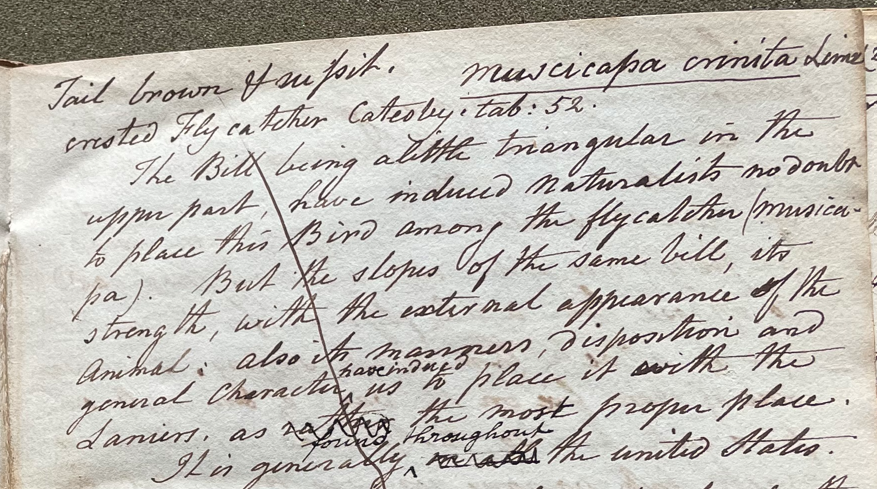 Tail brown & rufsit. muscicapa crinita Linn
crested Fly catcher Catesby. tab: 52.
The Bill being a little triangular in the
upper part, have induced naturalists no doubt
to place this Bird among the flycatcher (musica-
pa). But the slopes of the same bill, its
strength, with the external appearance of the
Animal: also its manners, disposition and
general Character have induced us to place it with the
Laniers. as the most proper place.
It is generally found throughout the united States.